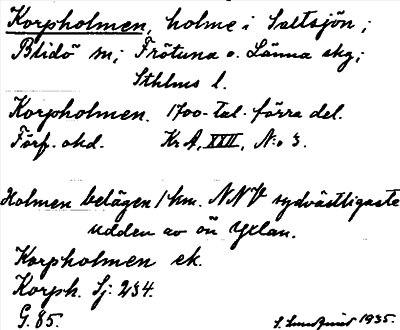 Korpholmen, holme i Saltsjön;
Blidö sn; Frötuna o. Länna skg;
Sthlms l.
Korpholmen. 1700-tal. förra del.
Förf. okd. Kr A, XXII, N:o 3.
Holmen belägen 1 km. NNV sydvästligaste
udden av ön Yxlan.
Korpholmen ek.
Korph. Sj: 234.
G. 85. 1935.